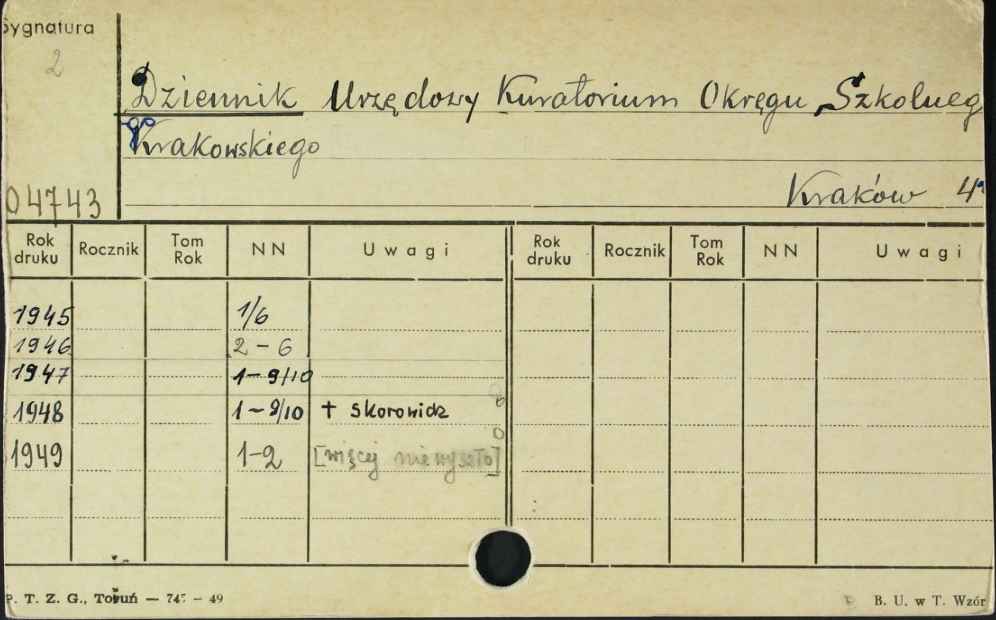 Sygnatura
2
Dziennik Urzędowy Kuratorium Okręgu Szkolneg
go
Krakowskiego
Kraków 4°
04743
Rok druku Rocznik Tom Rok NN Uwagi Rok druku Rocznik Tom Rok NN Uwagi
1945 1/6
1946 2-6
1947 1-9/10
1948 1-9/10 + skorowidz
1949 1-2 [więcej nie wyszło]
P. T. Z. G., Toruń — 747 — 49 B. U. w T. Wzór